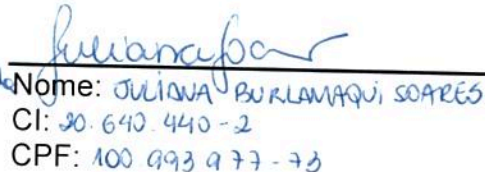 Nome: JULIANA BURLAMAQUI SOARES
CI: 20.640.440-2
CPF: 100 993 977-73